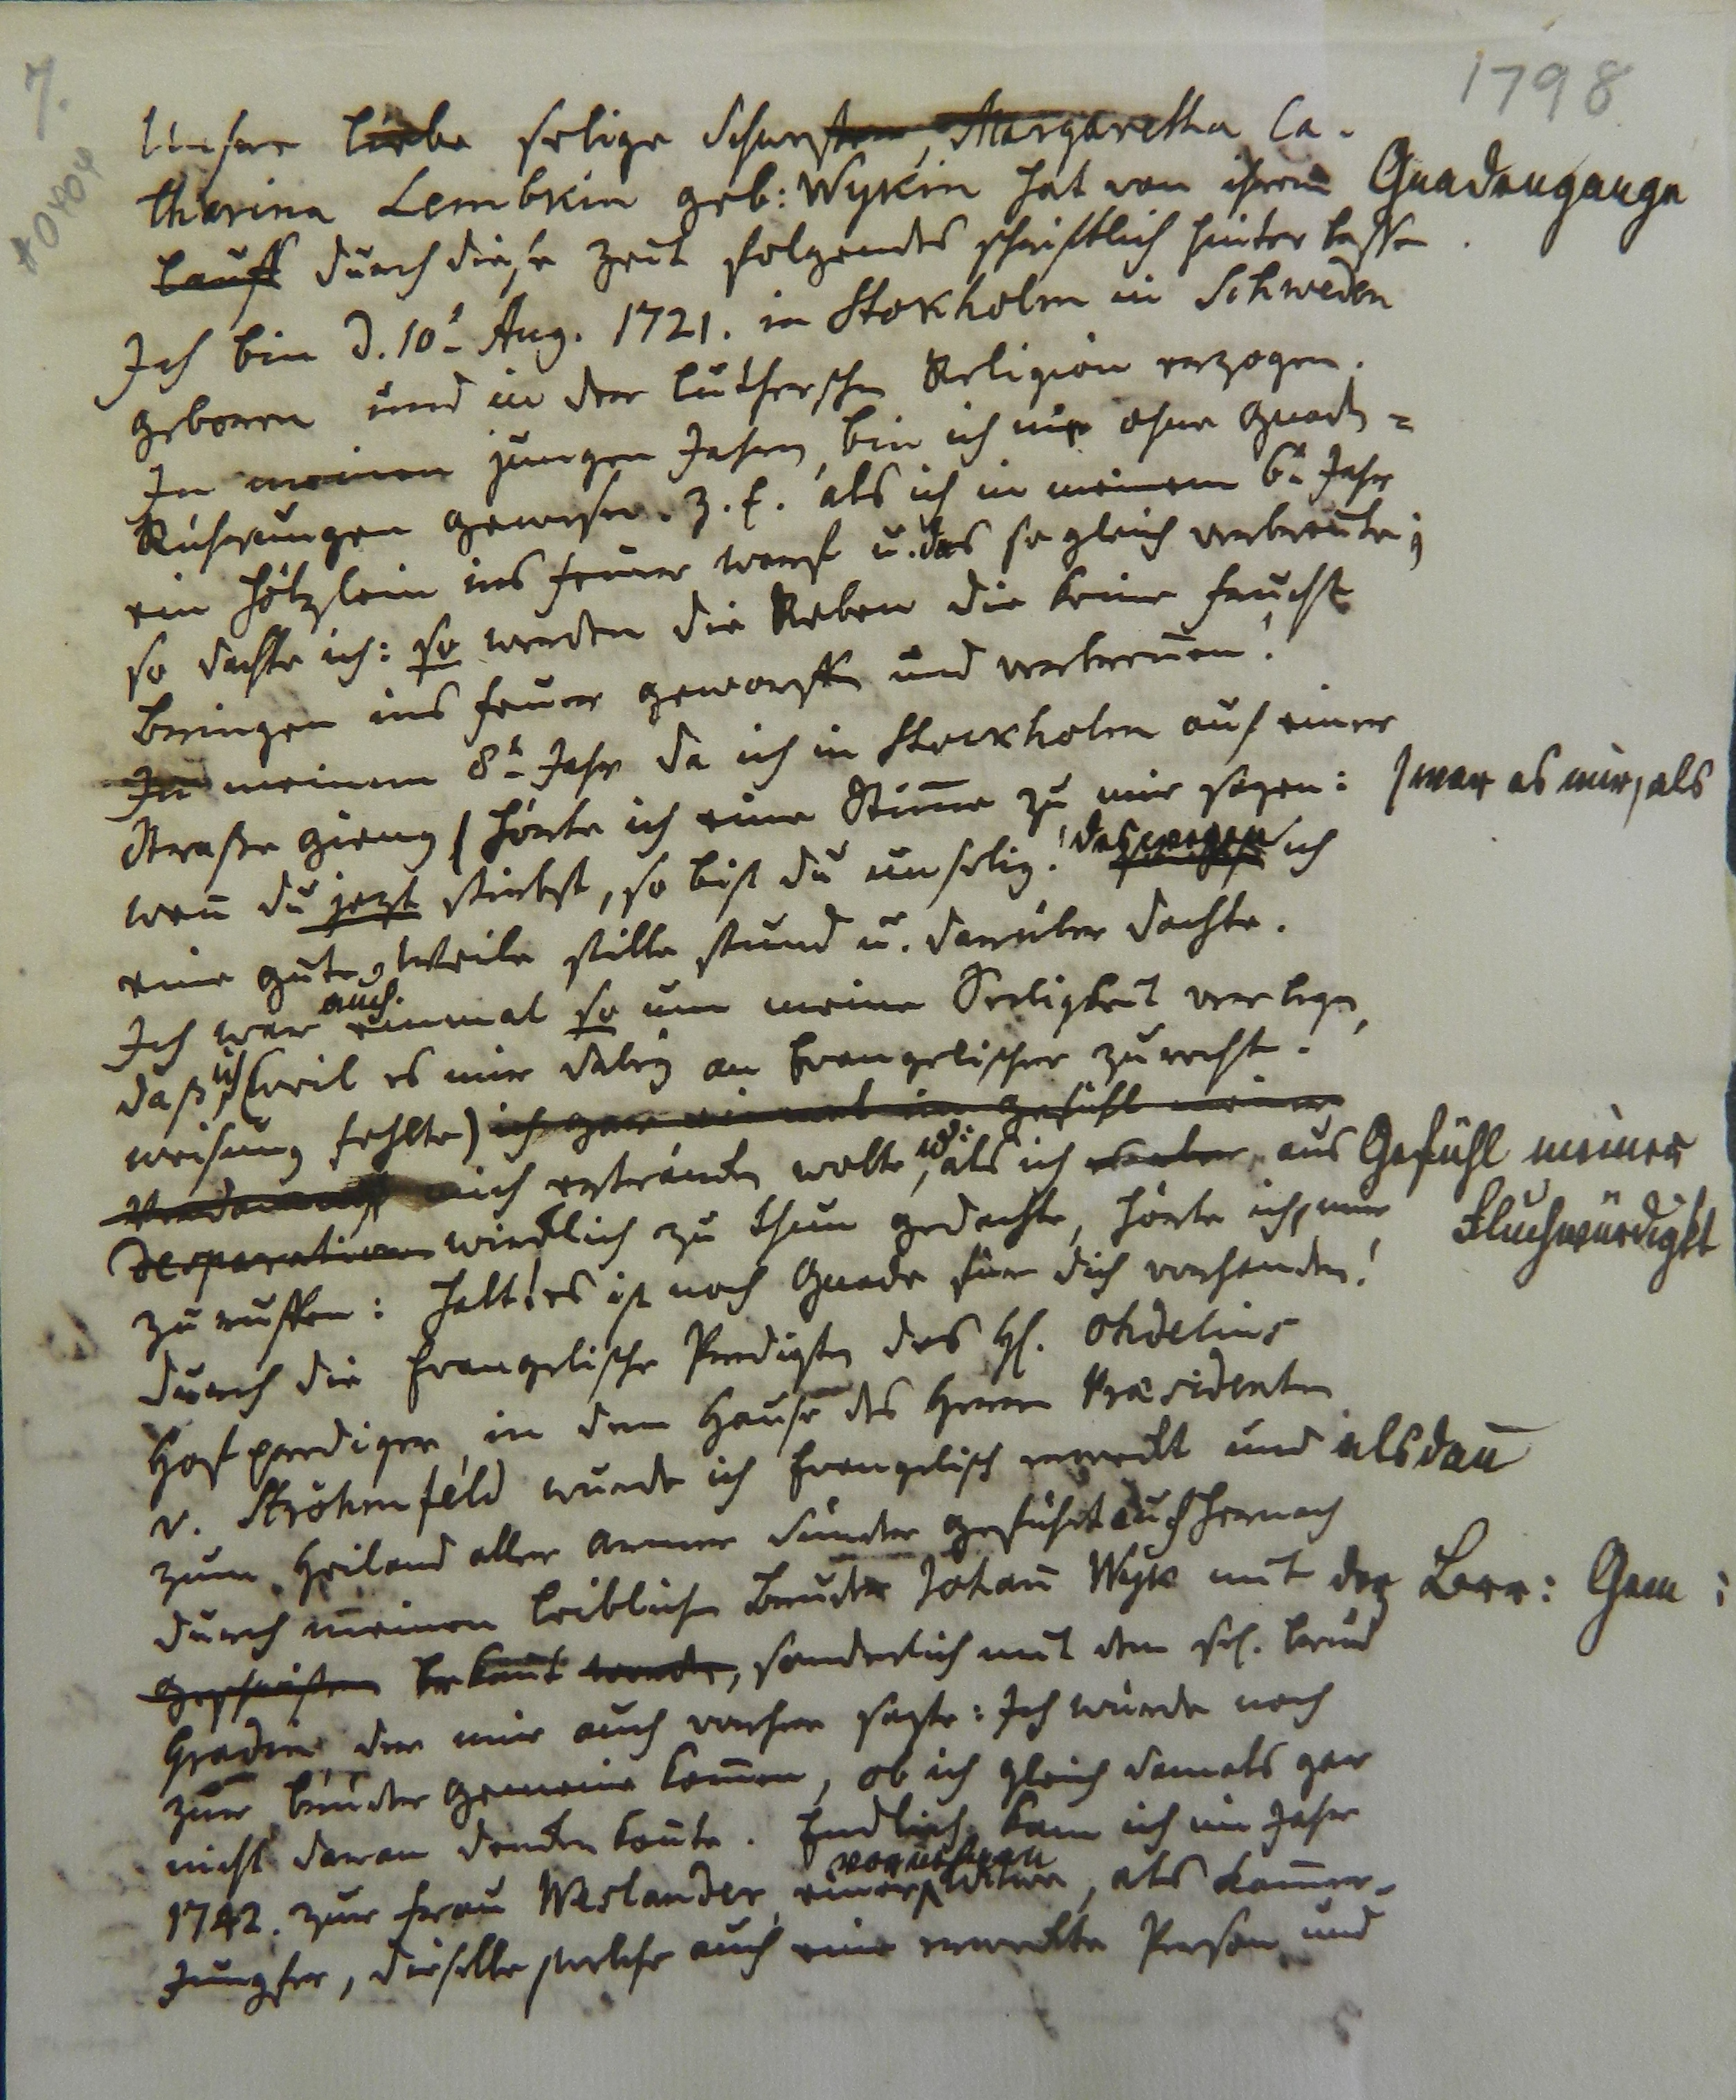 7.
1798
40404
Unsere liebe selige Schwester, Margaretha Ca-
tharina Lembkin geb: Wykin hat von ihrem Gnadengange
Lauff durch diese Zeit folgendes schriftlich hinterlassen.
Ich bin d. 10t Aug. 1721. in Stokholm in Schweden
geboren und in der Lutherschen Religion erzogen.
In meinen jungen Jahren, bin ich nie ohne Gnaden=
Rührungen gewesen. z. E. als ich in meinem 6n Jahr
ein Hölzlein ins Feuer warf u. das so gleich verbrente;
so dachte ich: so werden die Reben die keine Frucht
bringen ins Feuer geworffen und verbrennen!
In meinem 8n Jahr da ich in Stockholm auf einer
Strasse gieng hörte ich eine Stim̅e zu mir sagen: war es mir, als
wen̅ du jezt stirbst, so bist du unselig! deswegen ich
eine gute Weile stille stund u. darüber dachte.
Ich war auch einmal so um meine Seeligkeit verlegen,
daß, ich (weil es mir dabey an Evangelischer zurecht-
weisung fehlte) ich gar einmal im gefühl meiner
Verdammniß mich ertränken wolte, als ich es aber aus Gefühl meiner
Desparation wirklich zu thun gedachte, hörte ich, mir Fluchwürdigkt
zuruffen: Halt! es ist noch Gnade für dich vorhanden!
durch die Evangelische Predigten des H. Ohdelius
Hofprediger, in dem Hause des Herrn Præsidenten
v. Ströhmfeld wurde ich Evangelisch erweckt und alsdan̅
zum Heiland aller armer Sünder geführt auch hernach
durch meinen leiblichen Bruder Johan̅ Wyk mit der Brr: Gem:
Geschwistern bekan̅t wurde, sonderlich mit dem sel. Brud
Gradin, der mir auch vorher sagte: Ich würde noch
zur Brüder Gemeine kom̅en, ob ich gleich damals gar
nicht daran denken kon̅te. Endlich kam ich im Jahr
1742. zur Frau Weslander, einer vornehmen Witwe, als Kam̅er-
Jungfer, dieselbe welche auch eine erweckte Person und